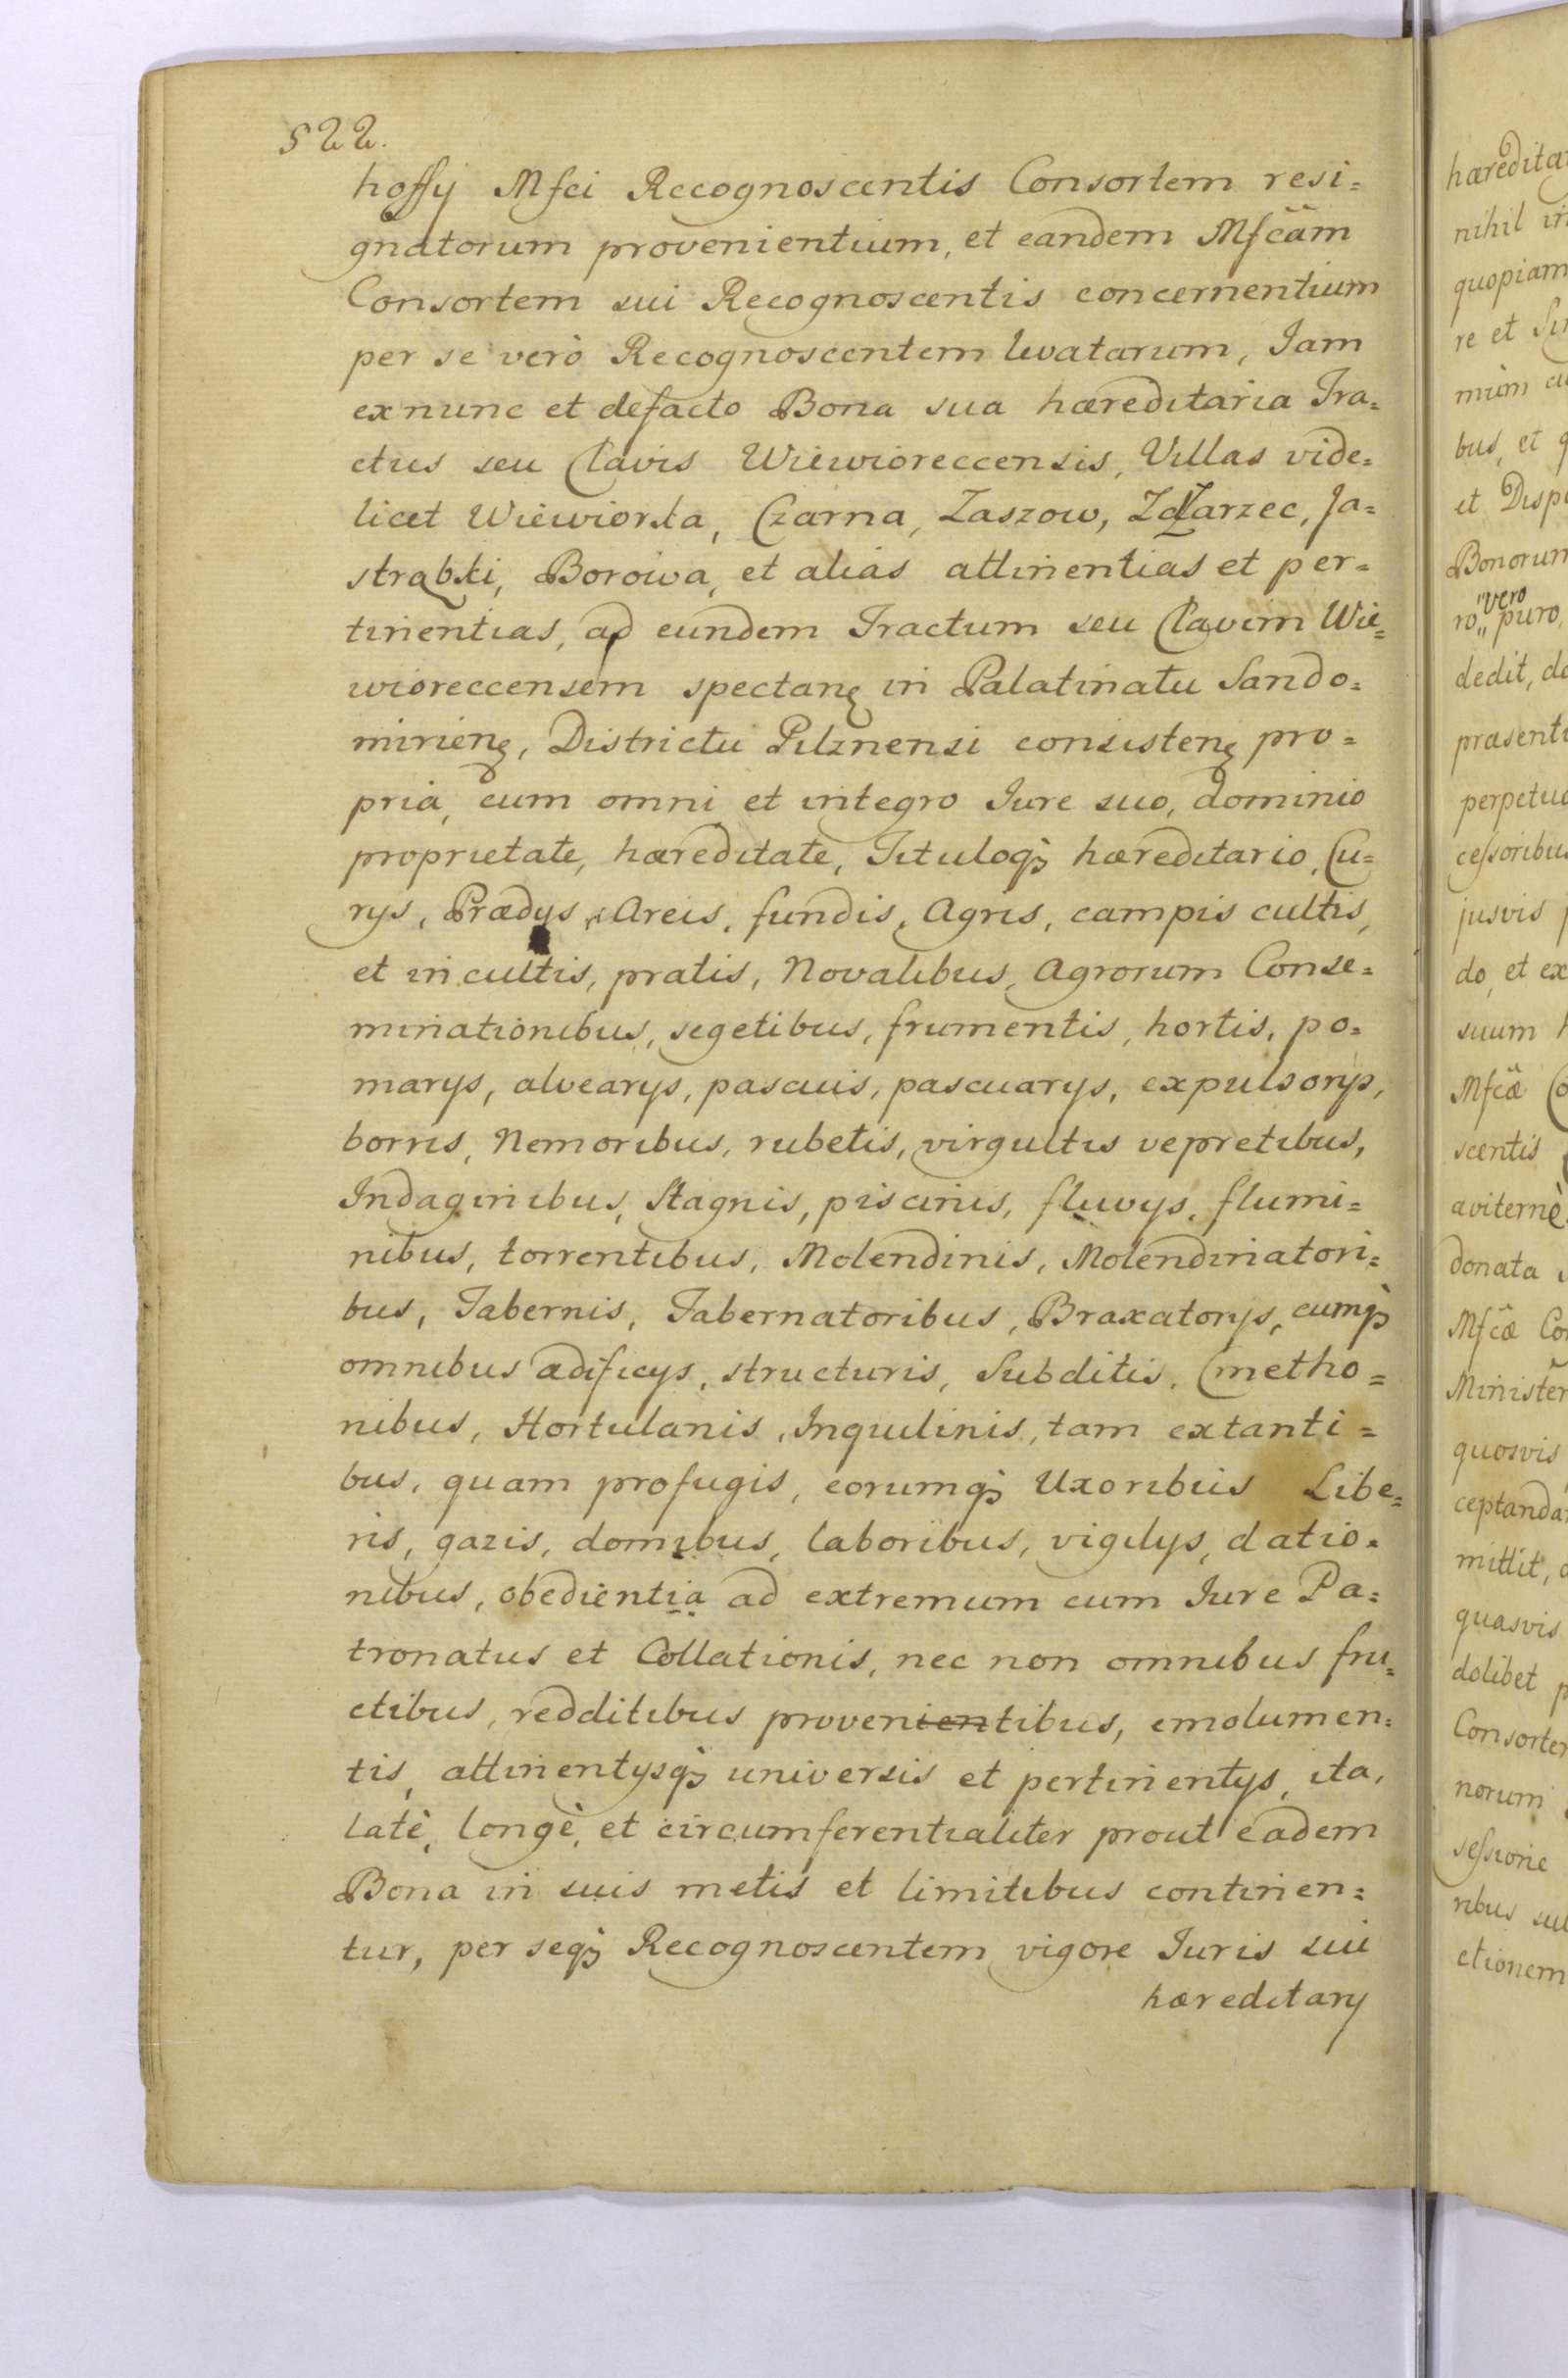 522.
hoffy Mfci Recognoscentis Consortem resi=
gnatorum provenientium, et eandem Mfcãm
Consortem sui Recognoscentis concernentium
per se verò Recognoscentem levatarum, Iam
ex nunc et defacto Bona sua hæreditaria Tra=
ctus seu Clavis Wiewioreccensis, Villas vide=
licet Wiewiorka, Czarna, Zaszow, Zdżarzec, Ja=
strąbki, Borowa, et alias attinentias et per=
tinentias, ad eundem Tractum seu Clavim Wie=
wioreccensem spectanę in Palatinatu Sando=
mirienę, Districtu Pilznensi consistenę pro=
pria, cum omni et integro Iure suo, dominio
proprietate, hæreditate, Tituloq₃ hæreditario, Cu=
rys, Prædys, Areis, fundis, Agris, campis cultis,
et incultis, pratis, Novalibus, Agrorum Conse=
minationibus, segetibus, frumentis, hortis, po=
marys, alvearys, pascuis, pascuarys, expulsorys,
borris, Nemoribus, rubetis, virgultis vepretibus,
Indaginibus, Stagnis, piscinis, fluvys, flumi=
nibus, torrentibus, Molendinis, Molendinatori=
bus, Tabernis, Tabernatoribus, Braxatorys, cumq₃
omnibus ædificys, structuris, Subditis, Cmetho=
nibus, Hortulanis, Inquilinis, tam extanti=
bus, quam profugis, eorumq₃ Uxoribus Libe=
ris, gazis, domibus, laboribus, vigilys, datio=
nibus, obedientia ad extremum cum Iure Pa=
tronatus et Collationis, nec non omnibus fru=
ctibus, redditibus provenientibus, emolumen=
tis, attinentysq₃ universis et pertinentys, ita,
latè, longè, et circumferentialiter prout eadem
Bona in suis metis et limitibus continen=
tur, per seq₃ Recognoscentem vigore Iuris sui
hæreditary
hæredita
nihil in
quopiam
re et
bus, et
et Disp
Bonorum
vero
ro,, puro,
dedit, d
præsent
perpetu
cessoribu
jusvis
do, et ex
suum
Mfcæ Co
scentis
aviternè
donata
Mfcæ Co
Minister
quosvis
ceptanda
mittit,
quasvis
dolibet p
Consorte
norum
sessione
ribus su
ctionem